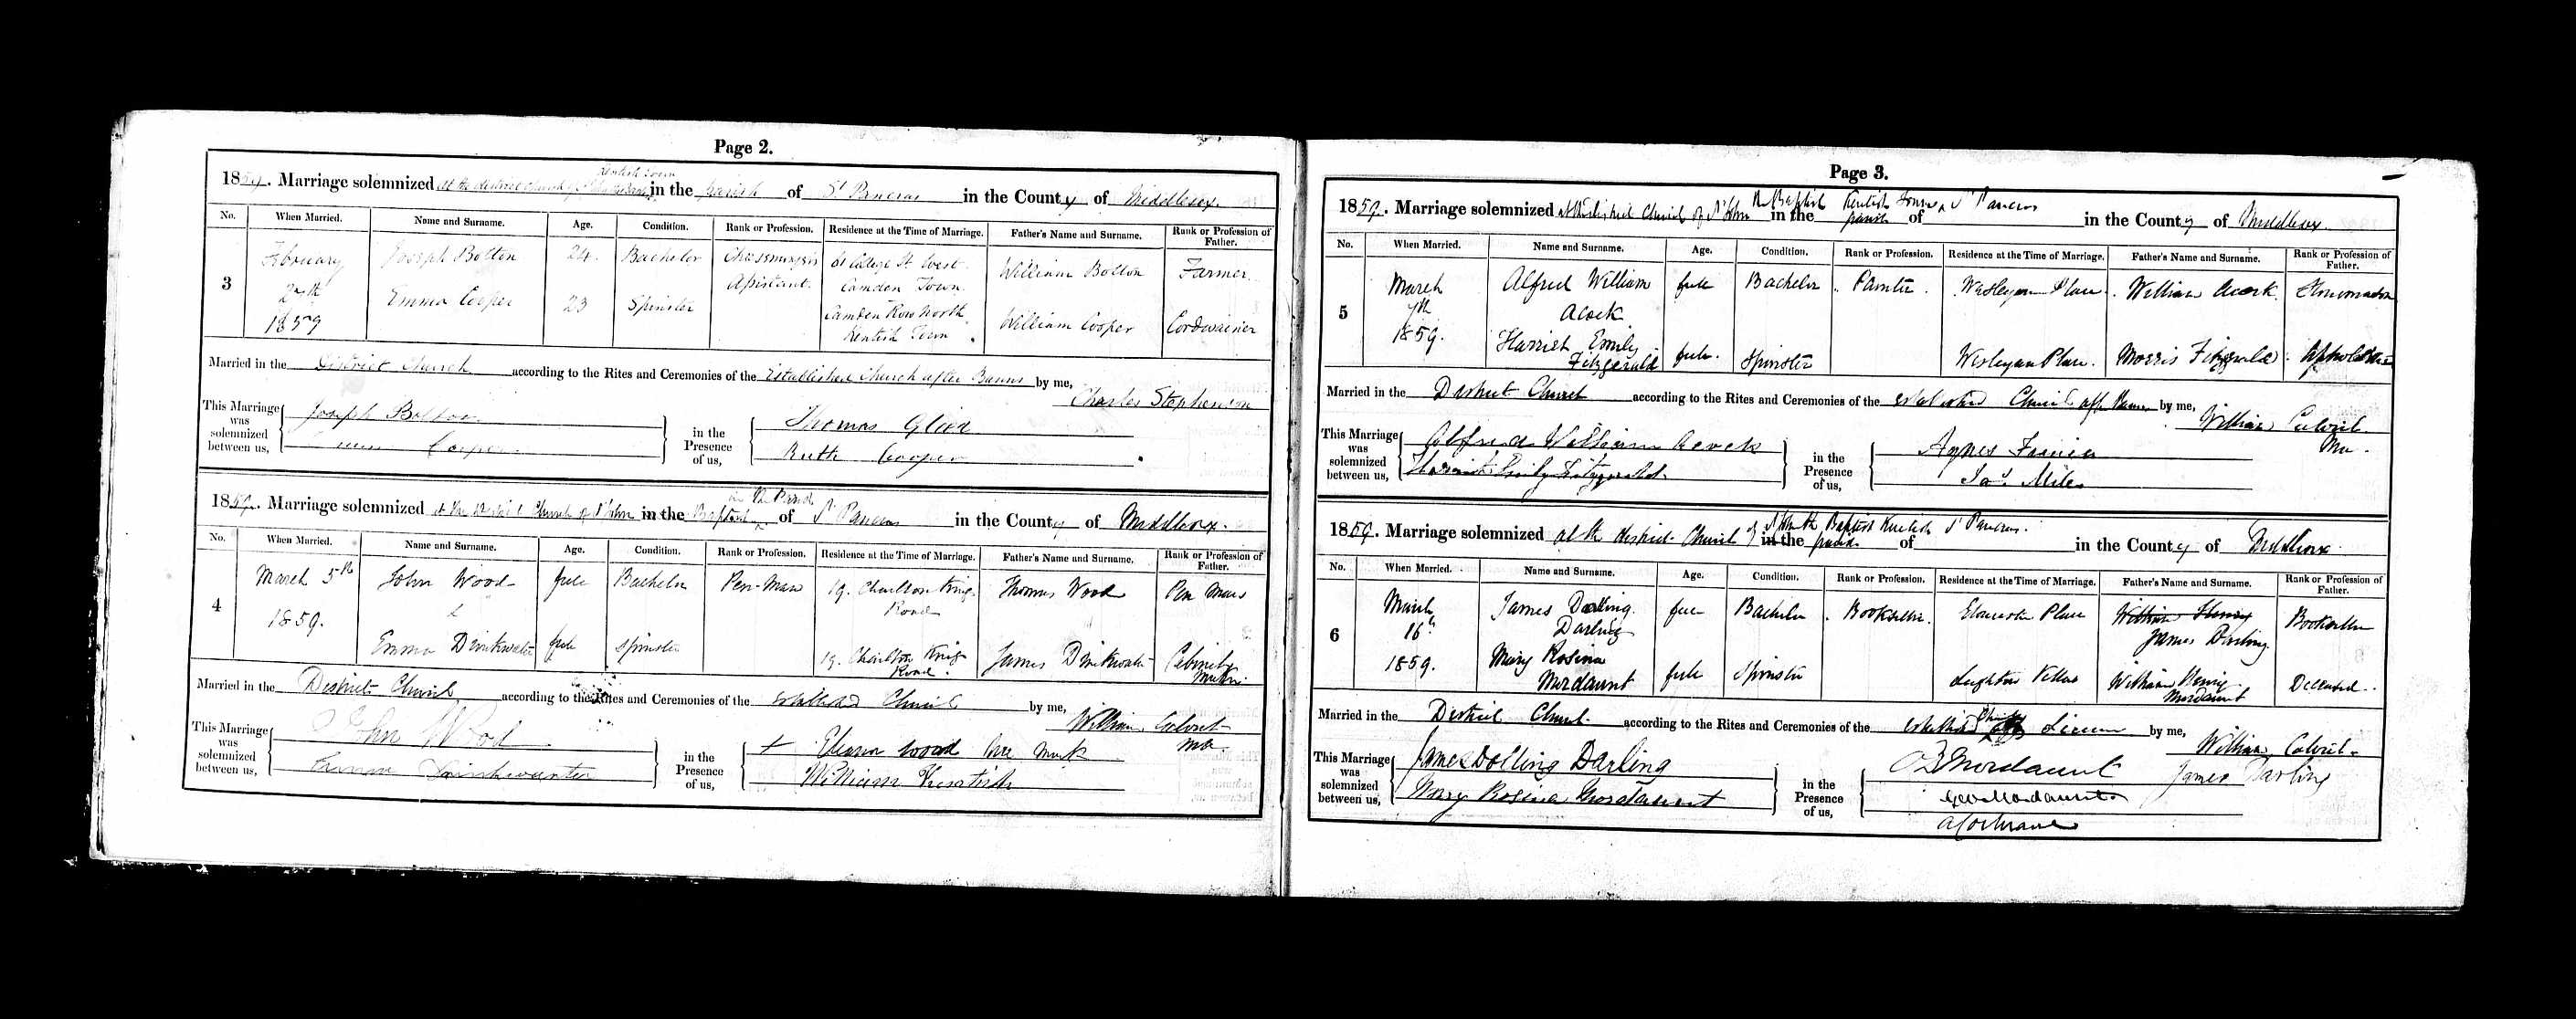 Page 2.
1859. Marriage solemnized at the district church of in the parish of St Pancras in the County of Middlesex.
Kentish Town
No. When Married. Name and Surname. Age. Condition. Rank or Profession. Residence at the Time of Marriage. Father's Name and Surname. Rank or Profession of Father.
3 February 27th 1859 Joseph Bolton 24. Bachelor Cheesemongers Assistant. College St West Camden Town William Bolton Farmer
Emma Cooper 23 Spinster Camden Row North Kentish Town. William Cooper Cordwainer
Married in the District Church according to the Rites and Ceremonies of the Established Church after Banns by me,
Charles Stephenson
This Marriage was solemnized between us, Joseph Bolton
Cooper
in the Presence of us, Thomas
Ruth Cooper
1859. Marriage solemnized at the District Church of St John in the Baptist of St Pancras in the County of Middlesex.
in the Parish
No. When Married. Name and Surname. Age. Condition. Rank or Profession. Residence at the Time of Marriage. Father's Name and Surname. Rank or Profession of Father.
4 March 5th 1859. John Wood full Bachelor Pen-Man 19. Charlton King Road Thomas Wood Pen Man
&
Emma Drinkwater full Spinster 19. Charlton King Road. James Drinkwater Cabinet Maker
Married in the District Church according to the Rites and Ceremonies of the established Church by me,
William Calvert
MA.
This Marriage was solemnized between us, John Wood
Emma Drinkwater
in the Presence of us, + Eleanor Wood her mark
William Kentish
Page 3.
1859. Marriage solemnized at the District Church of St John the Baptist in the Kentish Town parish of St Pancras in the County of Middlesex.
No. When Married. Name and Surname. Age. Condition. Rank or Profession. Residence at the Time of Marriage. Father's Name and Surname. Rank or Profession of Father.
5 March 7th 1859. Alfred William Acock full Bachelor Painter. Wesleyan Place. William Acock. Stonemason
Harriet Emily Fitzgerald full. Spinster Wesleyan Place. Morris Fitzgerald.
Married in the District Church according to the Rites and Ceremonies of the established Church after Banns by me,
William Calvert
MA.
This Marriage was solemnized between us, Alfred William Acock
Harriet Emily Fitzgerald.
in the Presence of us, Agnes
Jas. Miles
1859. Marriage solemnized at the district Church of St John the Baptist Kentish in the parish of St Pancras. in the County of Middlesex.
No. When Married. Name and Surname. Age. Condition. Rank or Profession. Residence at the Time of Marriage. Father's Name and Surname. Rank or Profession of Father.
6 March 16th 1859. James Dolling Darling full Bachelor Bookseller. Gloucester Place William Henry James Darling Bookseller
Mary Rosina Mordaunt full Spinster Leighton Villas William Henry Mordaunt Deceased.
Married in the District Church. according to the Rites and Ceremonies of the established Church by License by me,
William Calvert.
This Marriage was solemnized between us, James Dolling Darling
Mary Rosina Mordaunt
in the Presence of us, Mordaunt James Darling
Geo Mordaunt
A Cochrane